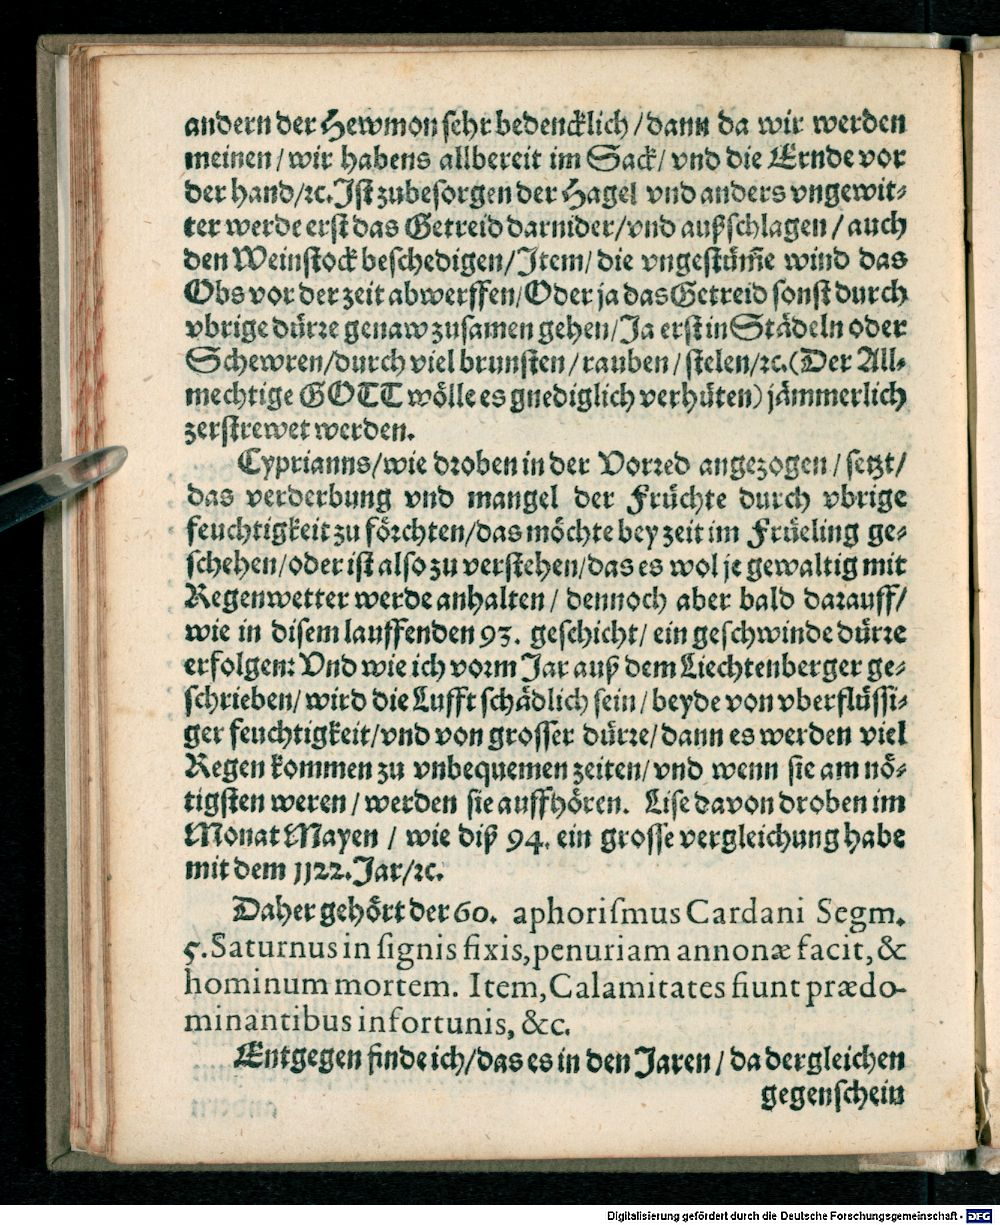 andern der Hewmon sehr bedencklich / dann da wir werden
meinen / wir habens allbereit im Sack / vnd die Ernde vor
der hand / ꝛc. Ist zubesorgen der Hagel vnd anders vngewit⸗
ter werde erst das Getreid darnider / vnd außschlagen / auch
den Weinstock beschedigen / Item / die vngestüm̃e wind das
Obs vor der zeit abwerffen / Oder ja das Getreid sonst durch
vbrige dürꝛe genaw zusamen gehen / Ja erst in Städeln oder
Schewren / durch viel brunsten / rauben / stelen / ꝛc. (Der All⸗
mechtige GOTT wölle es gnediglich verhüten) jämmerlich
zerstrewet werden.
Cyprianns / wie dꝛoben in der Voꝛꝛed angezogen / setzt /
das verderbung vnd mangel der Früchte durch vbrige
feuchtigkeit zu föꝛchten / das möchte bey zeit im Früeling ge⸗
schehen / oder ist also zu verstehen / das es wol je gewaltig mit
Regenwetter werde anhalten / dennoch aber bald daꝛauff /
wie in disem lauffenden 93. geschicht / ein geschwinde dürꝛe
erfolgen: Vnd wie ich voꝛm Jar auß dem Liechtenberger ge⸗
schrieben / wird die Lufft schädlich sein / beyde von vberflüssi⸗
ger feuchtigkeit / vnd von grosser dürꝛe / dann es werden viel
Regen kommen zu vnbequemen zeiten / vnd wenn sie am nö⸗
tigsten weren / werden sie auffhören. Lise davon dꝛoben im
Monat Mayen / wie diß 94. ein grosse vergleichung habe
mit dem 1122. Jar / ꝛc.
Daher gehört der 60. aphoriſmus Cardani Segm.
5. Saturnus in ſignis fixis, penuriam annonæ facit, &
hominum mortem. Item, Calamitates fiunt prædo-
minantibus infortunis, &c.
Entgegen finde ich / das es in den Jaren / da dergleichen
gegenschein
Digitalisierung gefördert durch die Deutsche Forschungsgemeinschaft - DFG